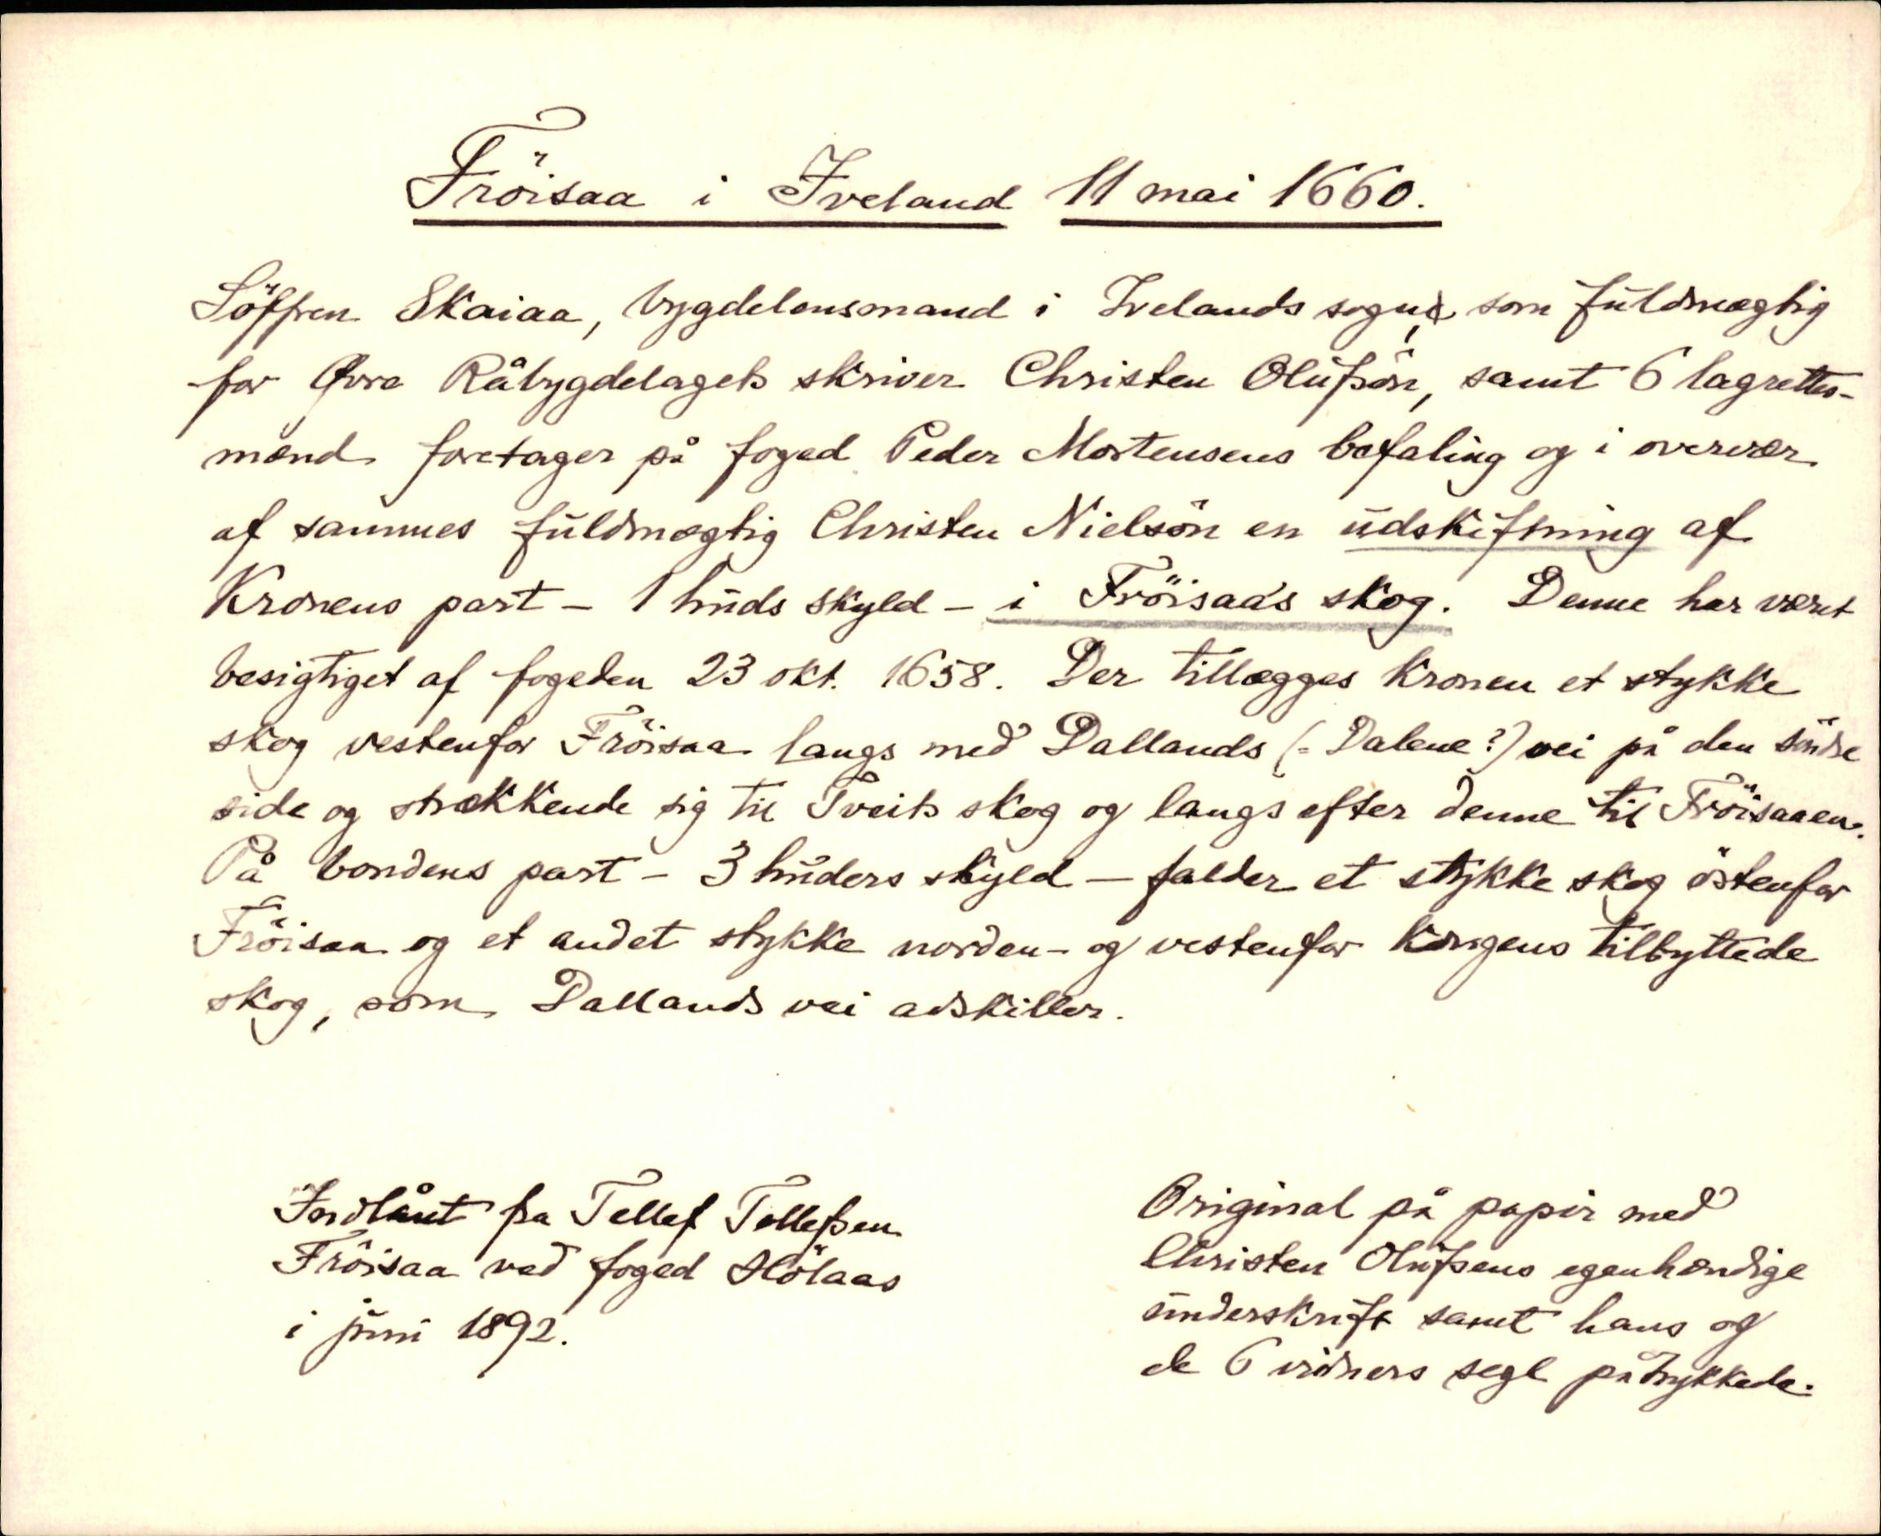 Fröisaa i Iveland 11 mai 1660.
Söffren Skaiaa, bygdelensmand i Ivelands sogn, som fuldmægtig
for Øvre Råbygdelagets skriver Christen Olufsön, samt 6 lagrettes-
mænd foretager på foged Peder Mortensens befaling og i overvær
af sammes fuldmægtig Christen Nielsön en udskiftning af
Kronens part - 1 huds skyld - i Fröisaa's skog. Denne har været
besigtiget af fogeden 23 okt. 1658. Der tillægges Kronen et stykke
skog vestenfor Fröisaa langs med Dallands (= Dalene?) vei på den söndre
side og strækkende sig til Tveits skog og langs efter denne til Fröisaaen.
På bondens part - 3 huders skyld - falder et stykke skog östenfor
Fröisaa og et andet stykke norden- og vestenfor kongens tilbyttede
skog, som Dallands vei adskiller.
Indlånt fra Tellef Tellefsen
Fröisaa ved foged Hölaas
i juni 1892.
Original på papir med
Christen Olufsens egenhændige
underskrift samt hans og
de 6 vidners segl påtrykkede.